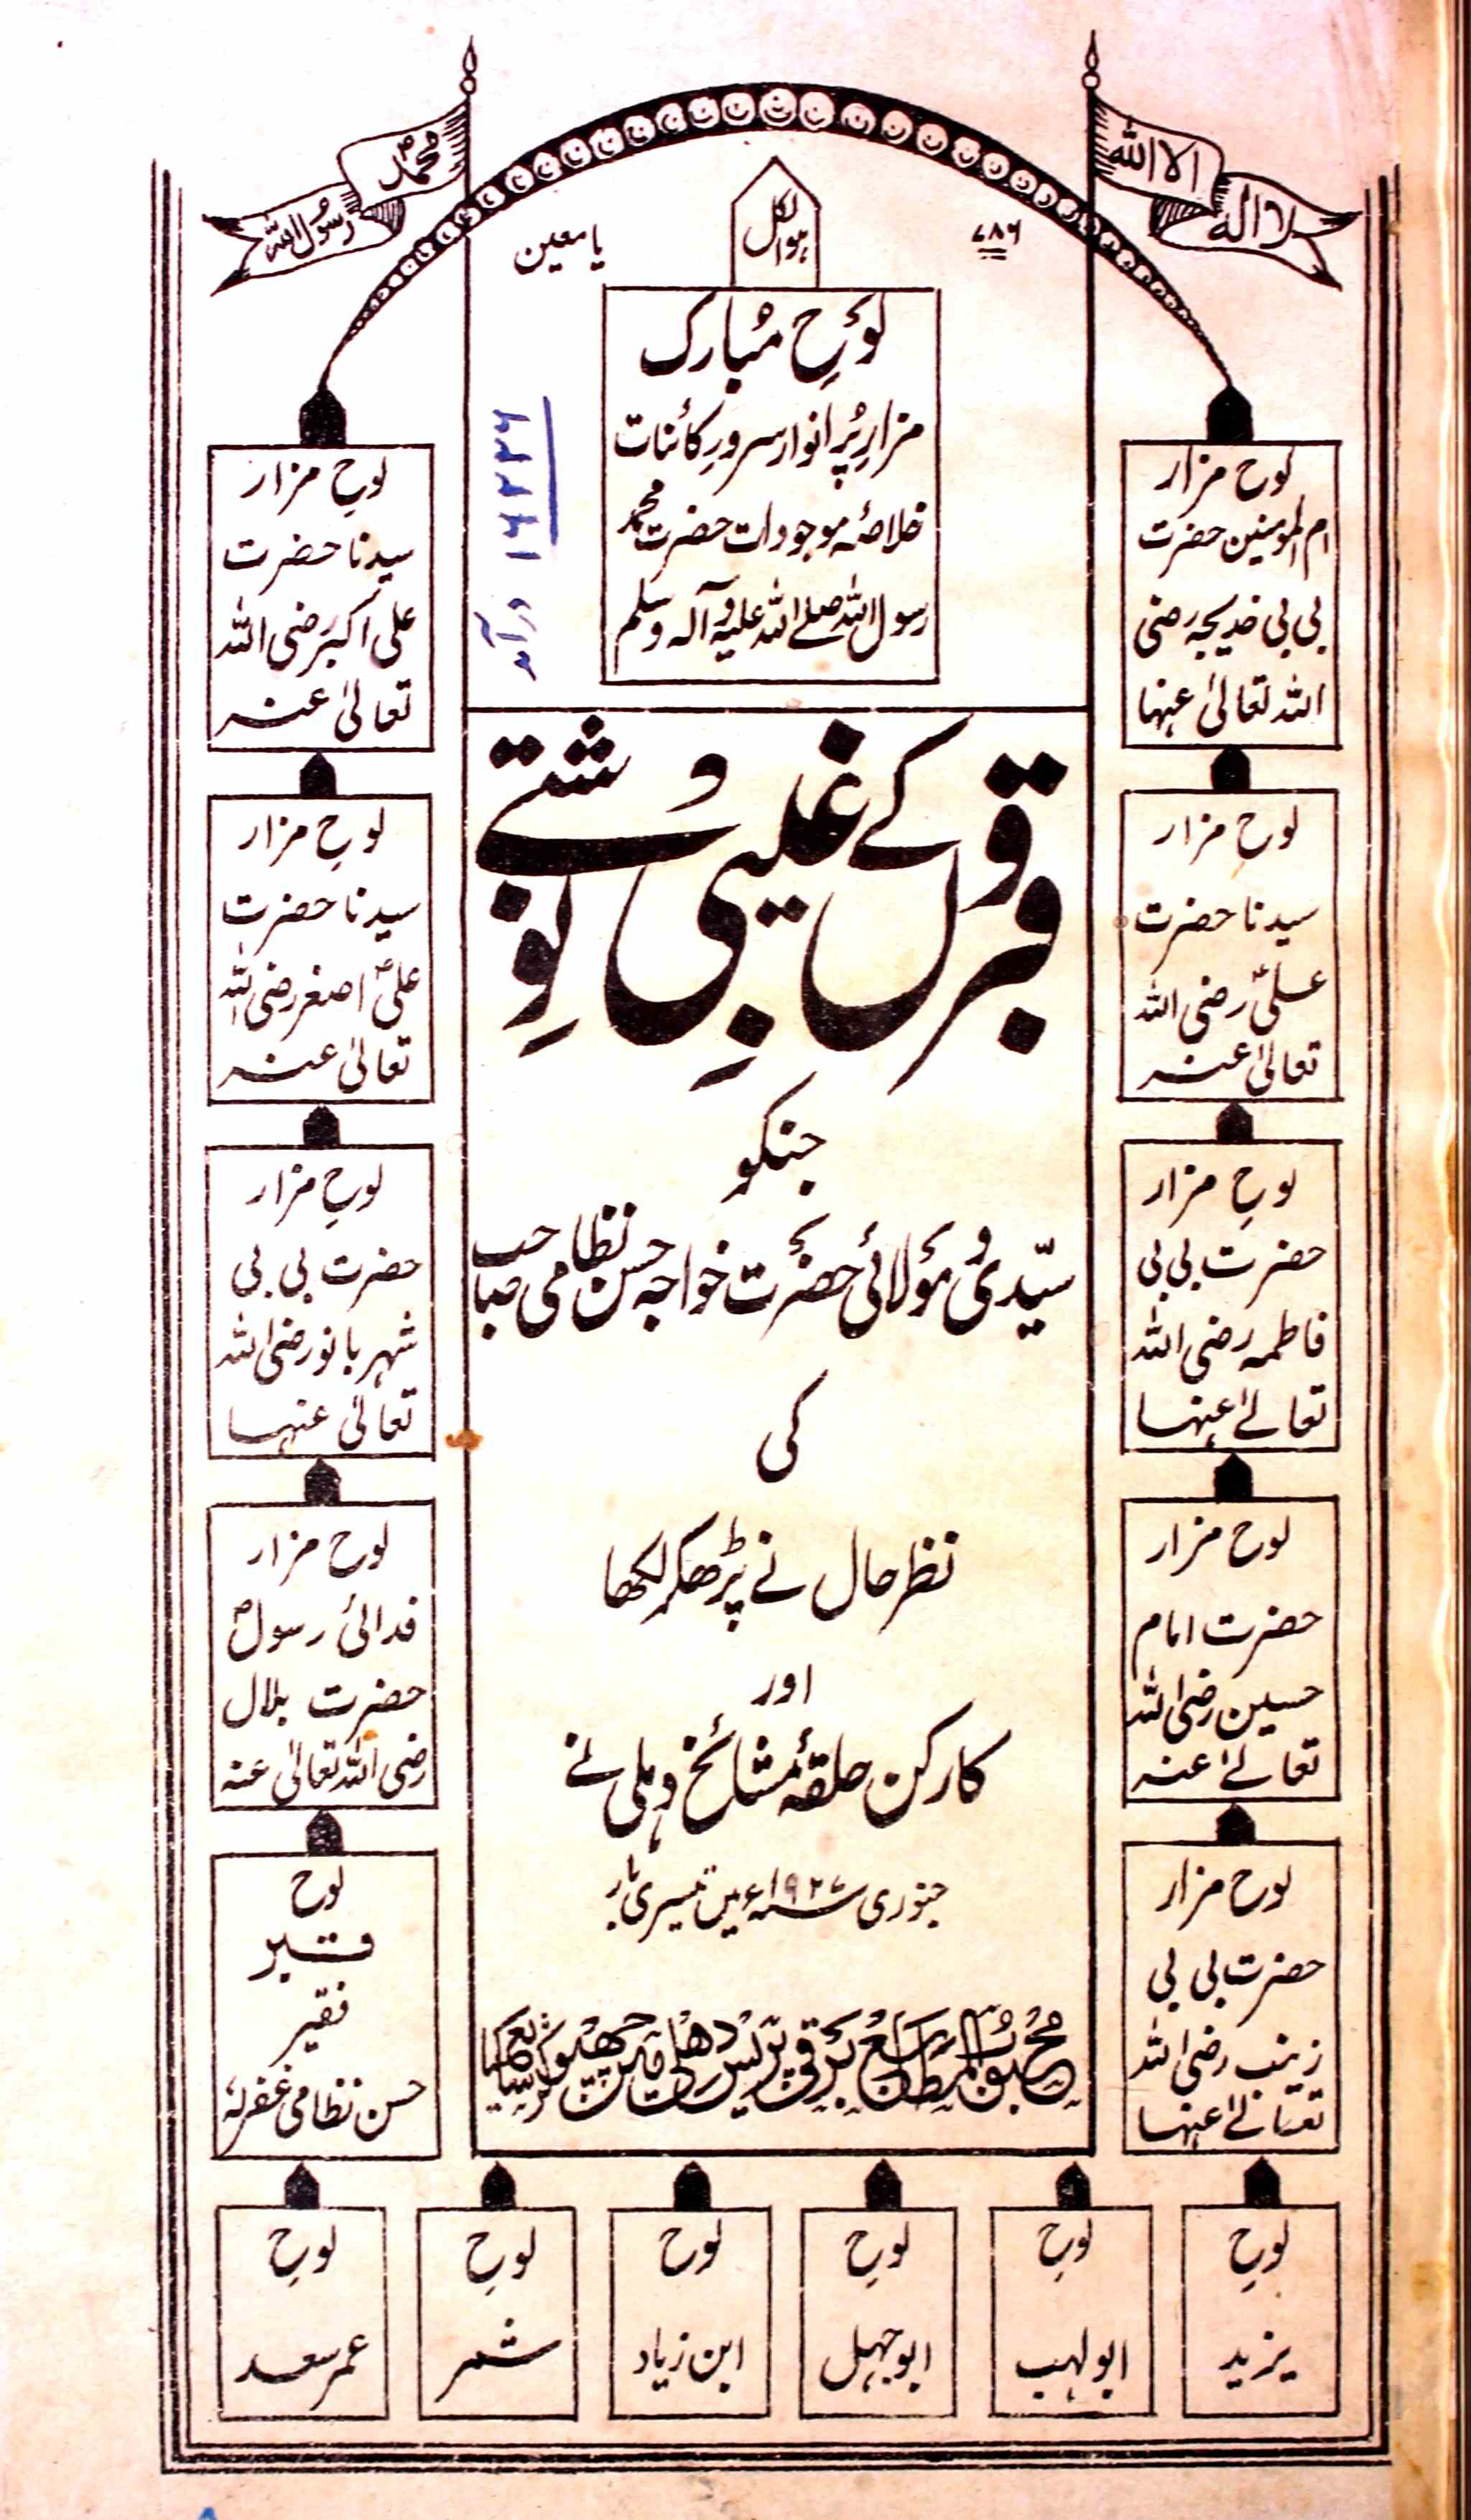 لا الہ
الا اللہ
محمدؐ
رسول اللہ
۷۸۶
ہوالکل
یا معین
لوحِ مُبارک
مزارِ پُر انوار سرورِ کائنات
خلاصۂ موجودات حضرت محمدؐ
رسول اللہ صلے اللہ علیہ وآلہ وسلم
۱۶۲۲۶
درآمد
قبروں کے غیبی نوِشتے
جنکو
سیّدی و مولائی حضرت خواجہ حسن نظامی صاحب
کی
نظرِ حال نے پڑھکر لکھا
اور
کارکن حلقۂ مشائخ دہلی نے
جنوری ۱۹۲۷ء میں تیسری بار
محبوب المطابع برقی پریس دھلی میں چھپوا کر شایع کیا
لوح مزار
ام المومنین حضرت
بی بی خدیجہ رضی
اللہ تعالیٰ عنہا
لوح مزار
سیدنا حضرت
علیؓ رضی اللہ
تعالیٰ عنہ
لوح مزار
حضرت بی بی
فاطمہ رضی اللہ
تعالےٰ عنہا
لوح مزار
حضرت امام
حسین رضی اللہ
تعالےٰ عنہ
لوح مزار
حضرت بی بی
زینب رضی اللہ
تعالےٰ عنہا
لوحِ مزار
سیدنا حضرت
علی اکبر رضی اللہ
تعالیٰ عنہ
لوحِ مزار
سیدنا حضرت
علی اصغر رضی اللہ
تعالیٰ عنہ
لوحِ مزار
حضرت بی بی
شہر بانو رضی اللہ
تعالیٰ عنہا
لوح مزار
فدائی رسولؐ
حضرت بلال
رضی اللہ تعالیٰ عنہ
لوح
قبر
فقیر
حسن نظامی غفرلہٗ
لوح
یزید
لوح
ابولہب
لوح
ابوجہل
لوح
ابن زیاد
لوح
شمر
لوح
عمر سعد